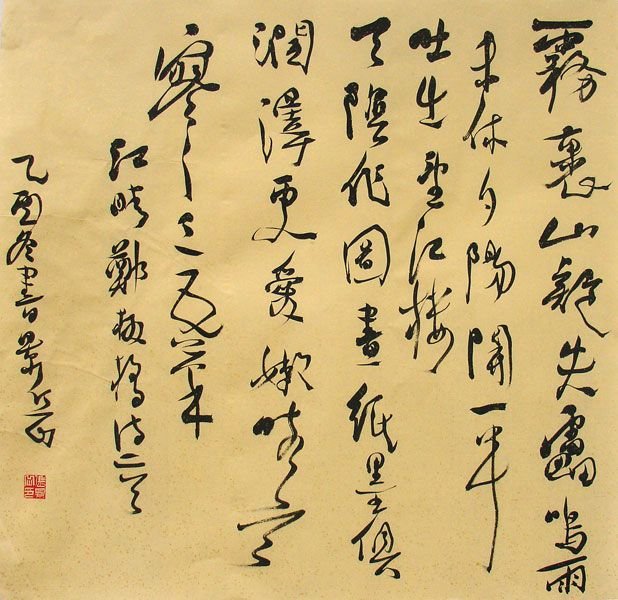 霧裹山疑失雷鳴雨
未休夕陽開一半
吐出望江樓
天陰作圖畫紙墨俱
潤澤更愛嫩晴天
寥寥三五筆
江晴鄭板橋詩二首
乙酉冬書